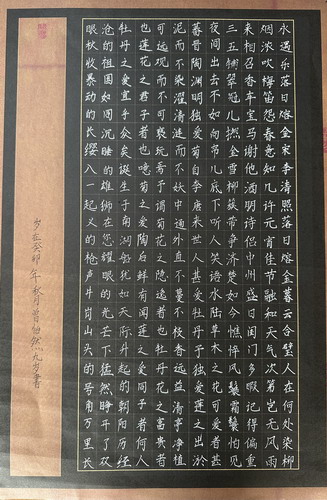 永遇乐落日熔金宋李清照落日熔金暮云合璧人在何处染柳
烟浓吹梅笛怨春意知几许元宵佳节融和天气次第岂无风雨
来相召香车宝马谢他酒朋诗侣中州盛日闺门多暇记得偏重
三五铺翠冠儿撚金雪柳簇带争济楚如今憔悴风鬟霜鬓怕见
夜间出去不如向帘儿底下听人笑语水陆草木之花可爱者甚
蕃晋陶渊明独爱菊自李唐来世人甚爱牡丹予独爱莲之出淤
泥而不染濯清涟而不妖中通外直不蔓不枝香远益清亭净植
可远观而不可亵玩焉予谓菊花之隐逸者也牡丹花之富贵者
也莲花之君子者也噫菊之爱陶后鲜有闻莲之爱同予者何人
牡丹之爱宜乎众矣诞生于南湖船犹如天际升起的朝阳历经
沧的祖国如同沉睡的雄狮在您耀眼的光芒下猛然睁开了双
眼秋收暴动的长缨八一起义的枪声井岗山头的号角万里长
岁在癸卯年秋月曾怡然九岁书